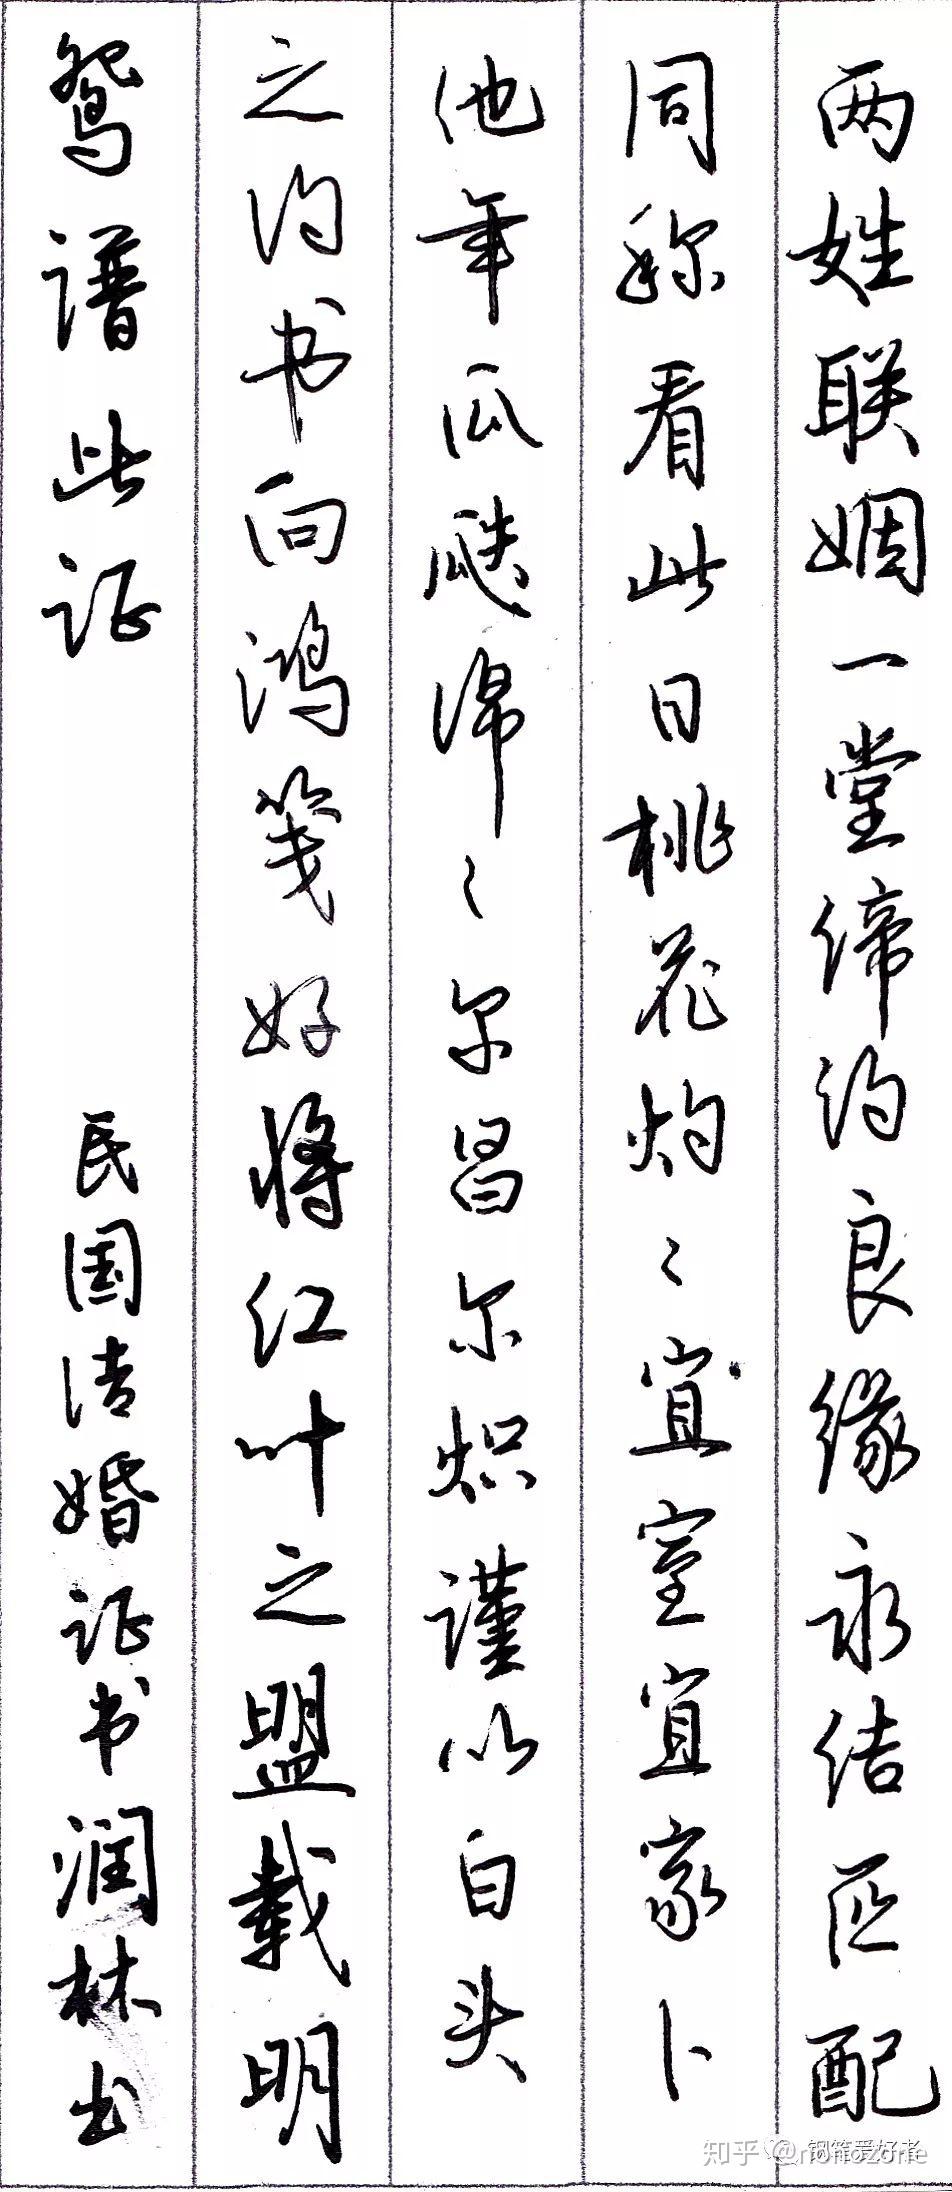 两姓联姻一堂缔约良缘永结匹配
同称看此日桃花灼〻宜室宜家卜
他年瓜瓞绵〻尔昌尔炽谨以白头
之约书向鸿笺好将红叶之盟载明
鸳谱此证
民国结婚证书润林书
知乎
钢笔爱好者